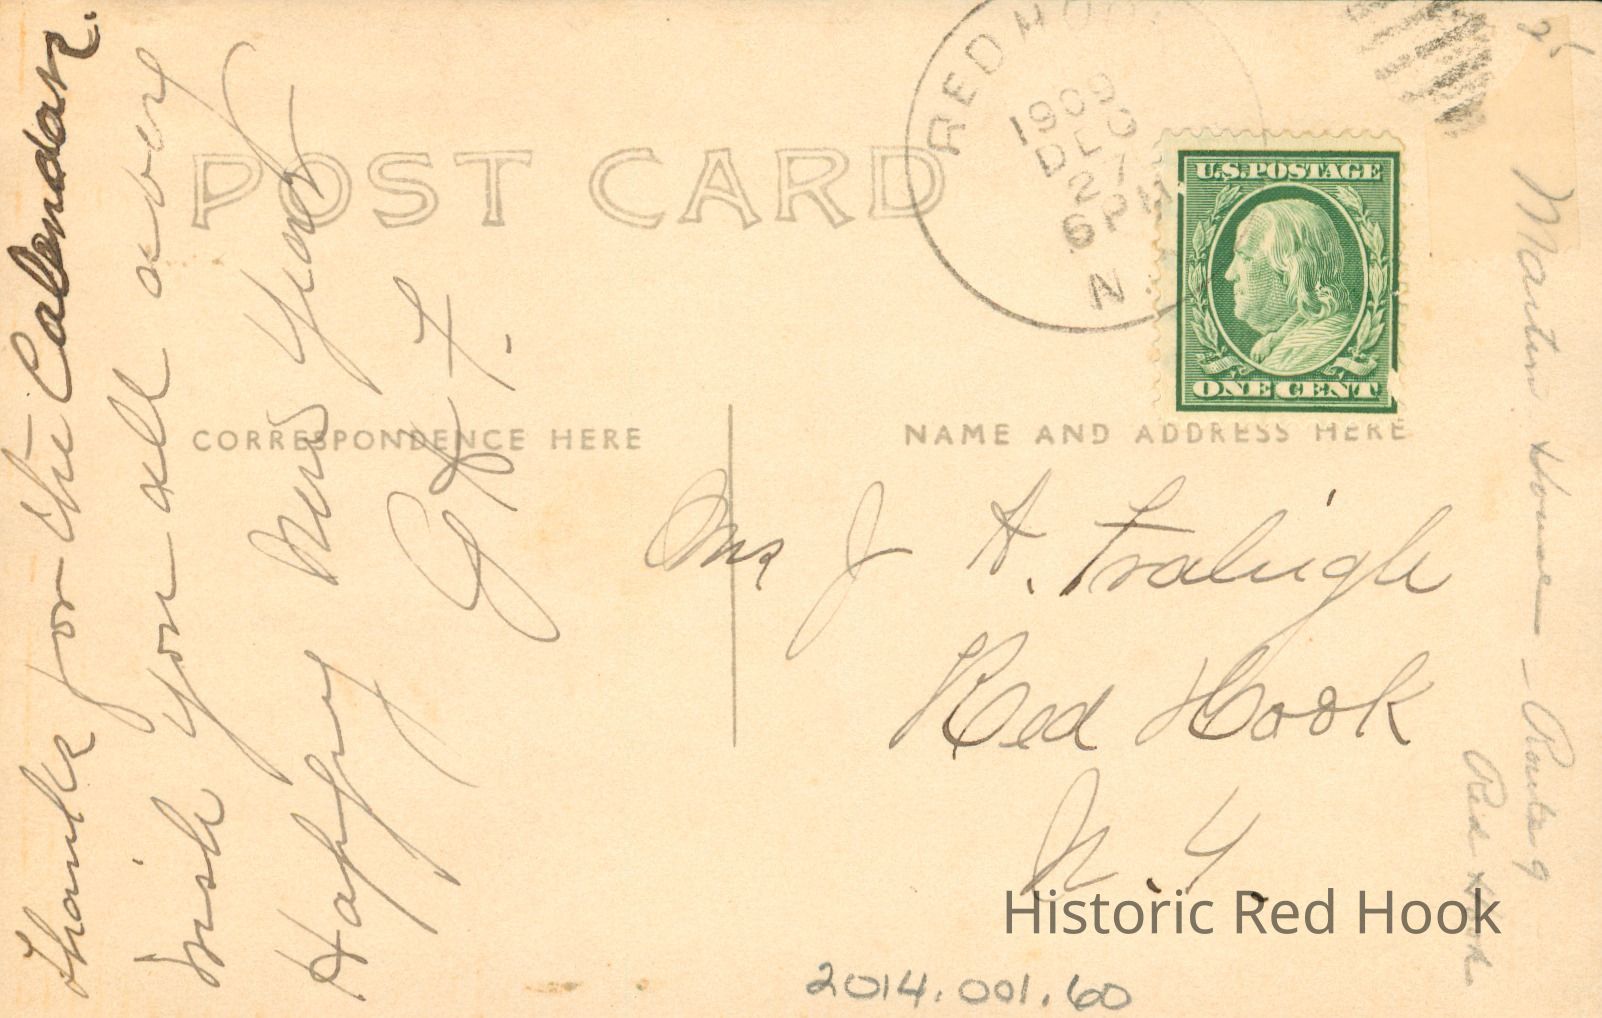 Thanks for the Calendar.
wish you all a very
Happy New Year
G. H. F.
POST CARD
CORRESPONDENCE HERE
NAME AND ADDRESS HERE
RED HOOK
1909
DEC
27
6 PM
N.
U.S. POSTAGE
ONE CENT
Mrs J H. Fraleigh
Red Hook
N. Y.
Martin Home - Route 9
Red Hook
Historic Red Hook
2014.001.60